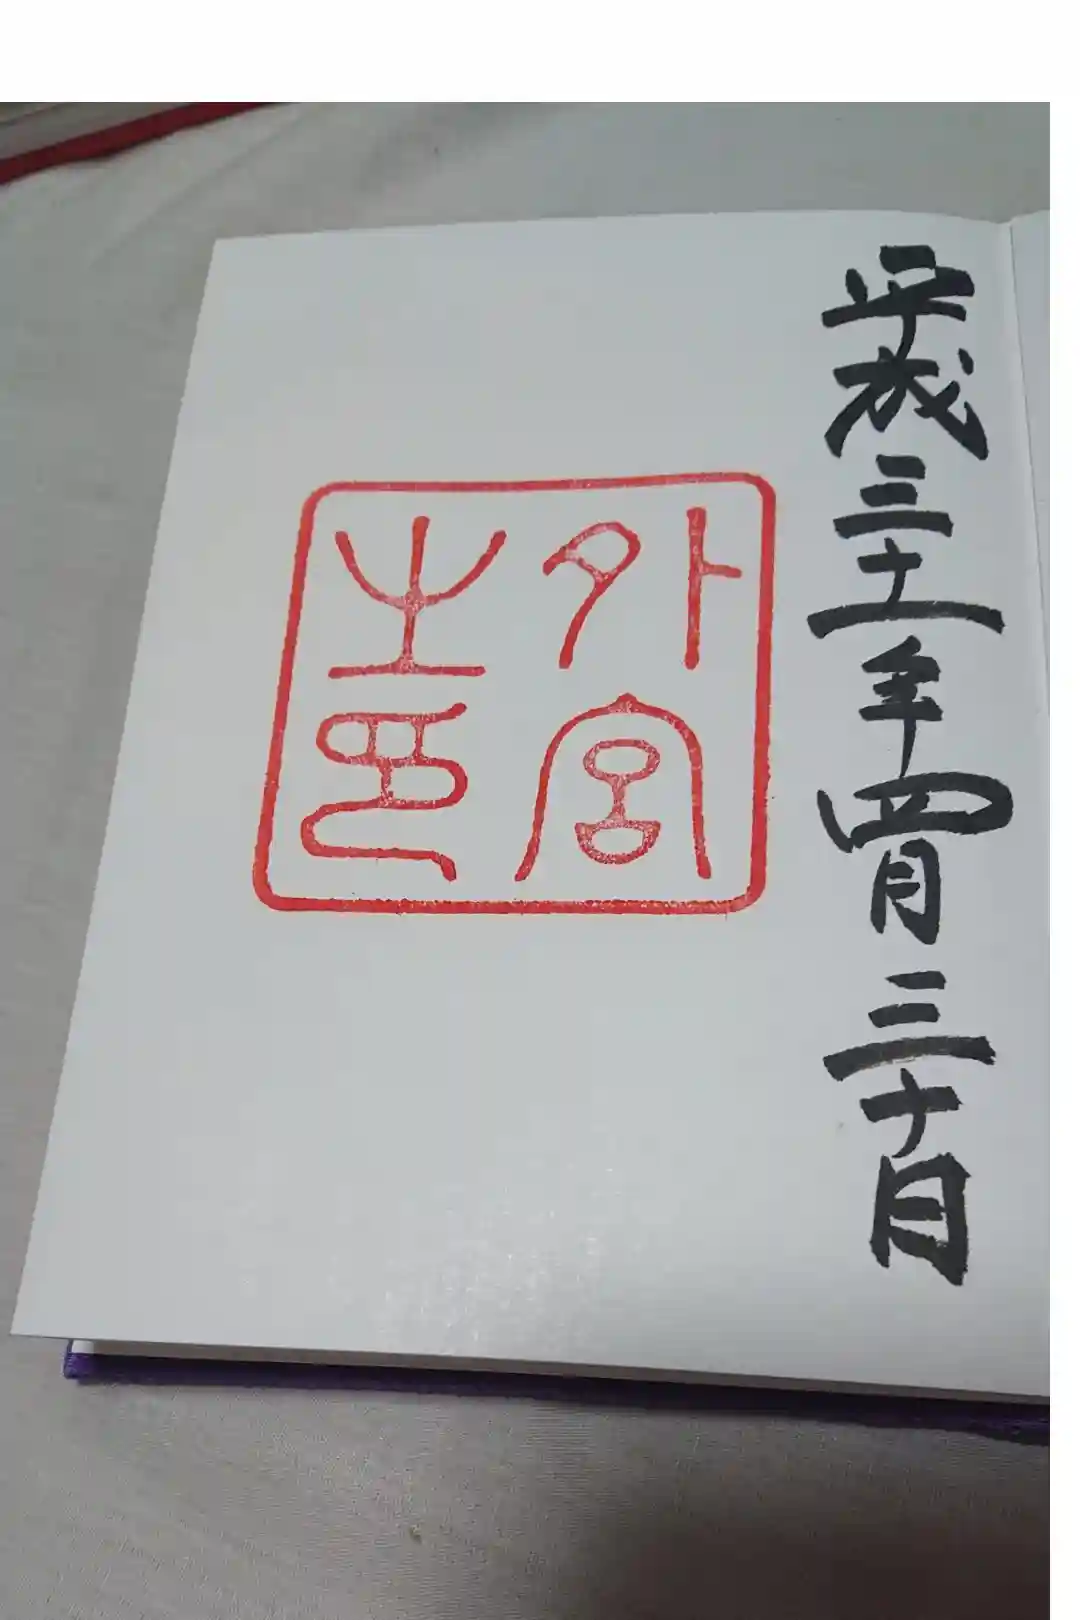 平成三十一年四月三十日
外宮
之印